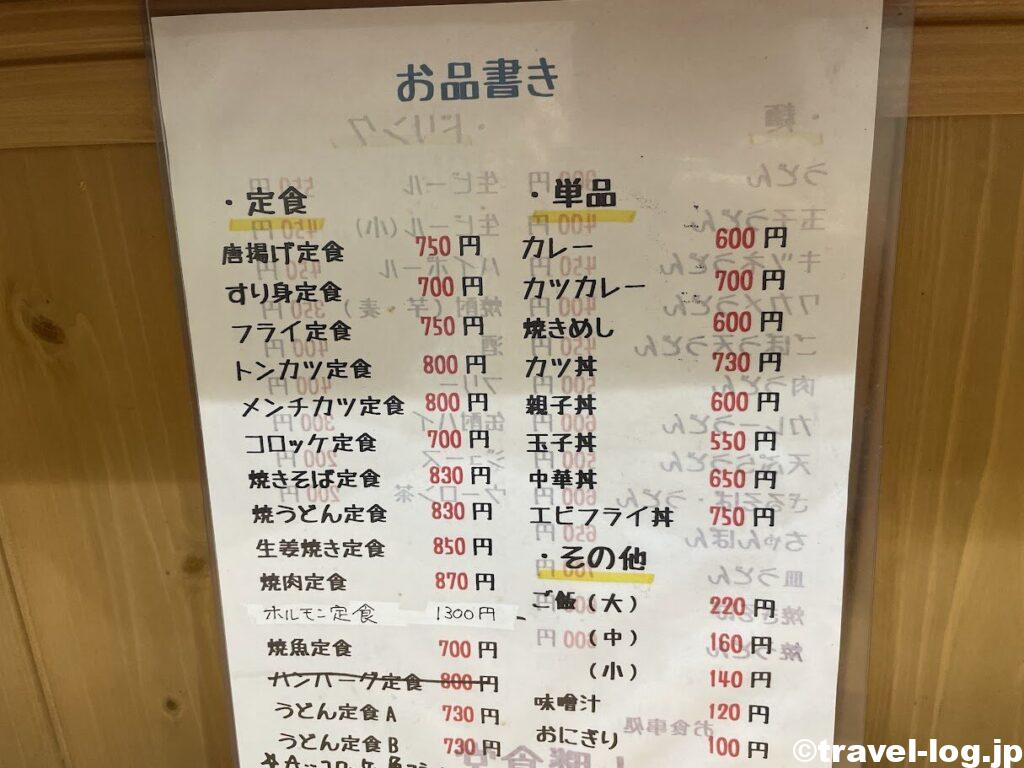 お品書き
・定食
唐揚げ定食 750円
すり身定食 700円
フライ定食 750円
トンカツ定食 800円
メンチカツ定食 800円
コロッケ定食 700円
焼きそば定食 830円
焼うどん定食 830円
生姜焼き定食 850円
焼肉定食 870円
ホルモン定食 1300円
焼魚定食 700円
ハンバーグ定食 800円
うどん定食A 730円
うどん定食B 730円
・単品
カレー 600円
カツカレー 700円
焼きめし 600円
カツ丼 730円
親子丼 600円
玉子丼 550円
中華丼 650円
エビフライ丼 750円
・その他
ご飯(大) 220円
(中) 160円
(小) 140円
味噌汁 120円
おにぎり 100円
©travel-log.jp